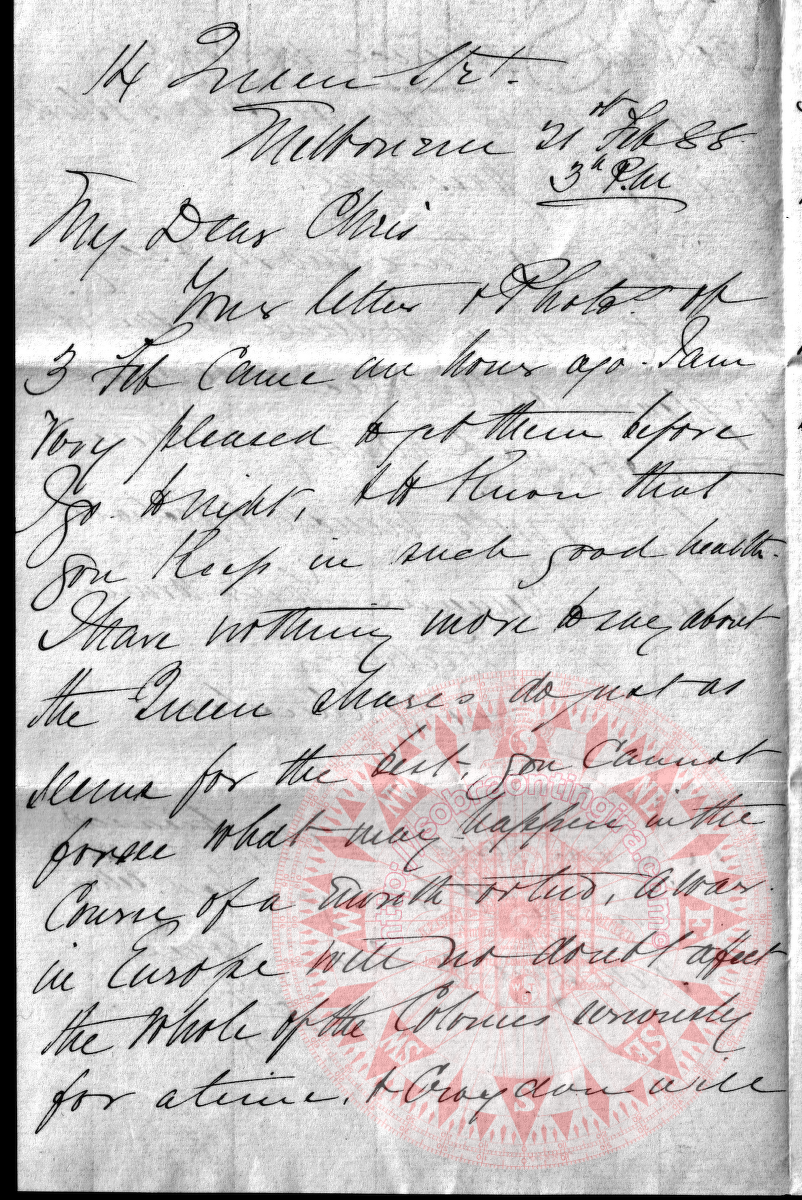 14 Queen Str.
Melbourne 21st Feb 88
3h P.M
My Dear Chris
Your letter & Photos of
3 Feb Came an hour ago. I am
very pleased to get them before
I go to night, & to Know that
you Keep in such good health.
I Have nothing more to say about
the Queen shares do just as
seems for the best, you Cannot
forsee what may happen in the
Course of a month or two, A war
in Europe will no doubt affect
the Whole of the Colonies seriously
for a time, & Croydon will